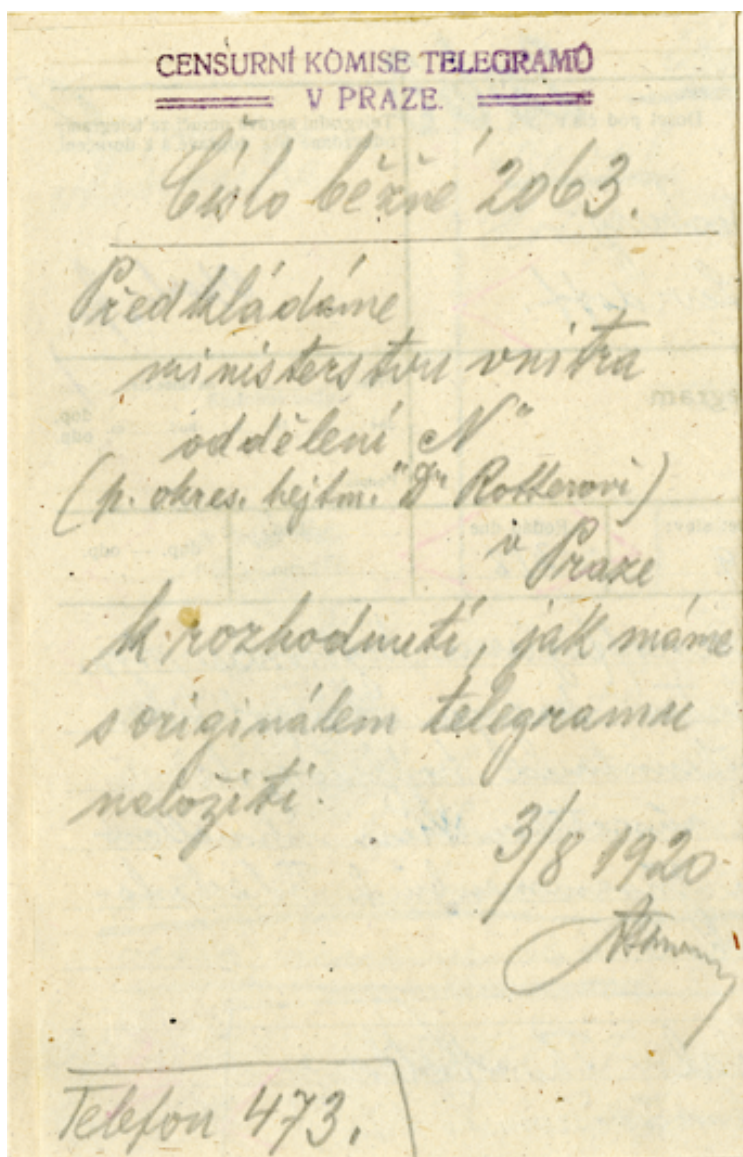 CENSURNÍ KOMISE TELEGRAMŮ
V PRAZE.
Číslo běžné 2063.
Předkládáme
ministerstvu vnitra
oddělení „N“
(p. okres. hejtm. "Dr Rotterovi)
v Praze
k rozhodnutí, jak máme
s originálem telegramu
naložiti.
3/8 1920
Telefon 473.